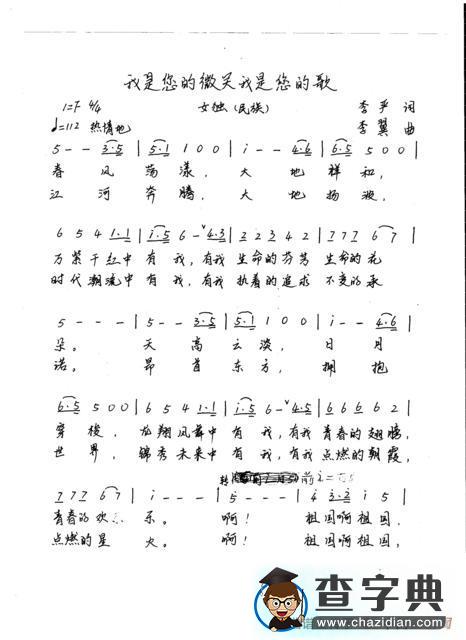 我是您的微笑我是您的歌
1=F 4/4 女独(民族) 李乎 词
♩=112 热情地 李翼 曲
5 - - 3·5 | 5·1 1 0 0 | i - - 4·6 | 6·5 5 0 0 |
春风荡漾,大地祥和,
江河奔腾,大地扬波,
6 5 4 1·1 | i·5 6 - 4·3 | 2 2 3 4 2 | 7 7 7 6 7 |
万紫千红中有我,有我生命的芬芳 生命的花
时代潮流中有我,有我执着的追求 不变的承
5 - - - | 5 - - 3·5 | 5·1 1 0 0 | i - - 4·6 |
朵。天高云淡,日月
诺。昂首东方,拥抱
6·5 5 0 0 | 6 5 4 1·1 | i·5 6 - 4·5 | 6 6 6 6 2 |
穿梭,龙翔凤舞中有我,有我青春的翅膀,
世界,锦秀未来中有我,有我点燃的朝霞,
转 前
7 7 7 6 7 | i - - - | 5 - - - | 4 3·2 i 5 |
青春的欢乐。啊!祖国啊祖国,
点燃的星火。啊!祖国啊祖国,
查字典
www.chazidian.com